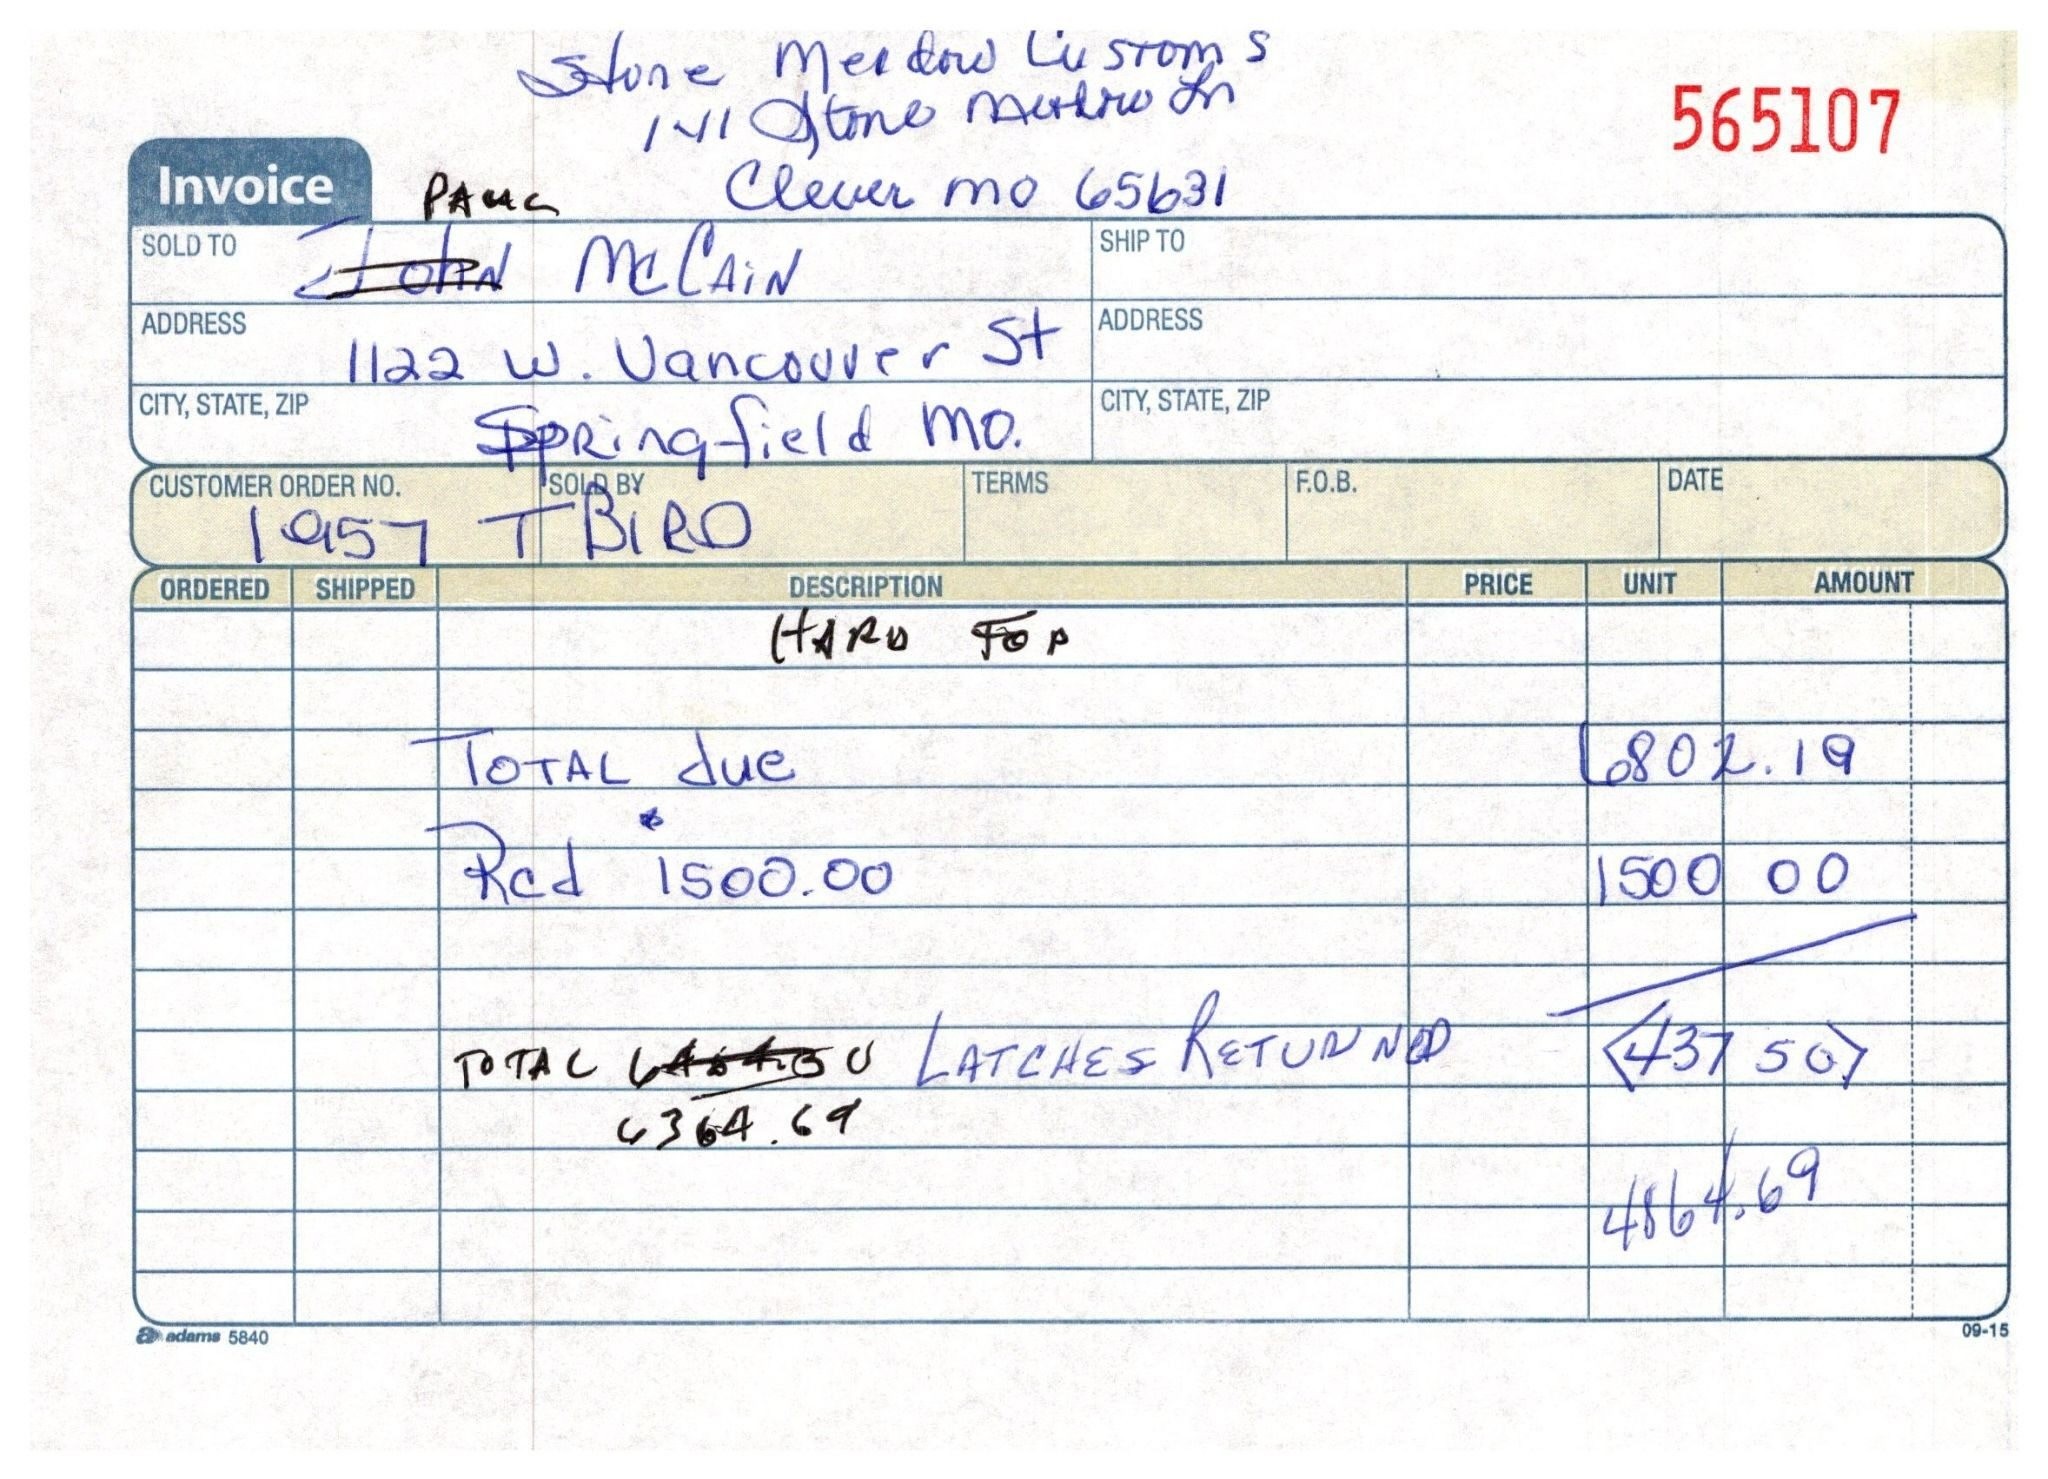 Stone Meadow Customs
141 Stone Meadow Ln
565107
Invoice
Clever mo 65631
SOLD TO John McCain
SHIP TO
ADDRESS 1122 W. Vancouver St
ADDRESS
CITY, STATE, ZIP Springfield MO.
CITY, STATE, ZIP
CUSTOMER ORDER NO. SOLD BY TERMS F.O.B. DATE
1957 T BIRD
ORDERED SHIPPED DESCRIPTION PRICE UNIT AMOUNT
HARD TOP
TOTAL due 6802.19
Rcd 1500.00 1500 00
TOTAL LATCHES RETURNED <437 50>
6364.69
4864.69
adams 5840
09-15